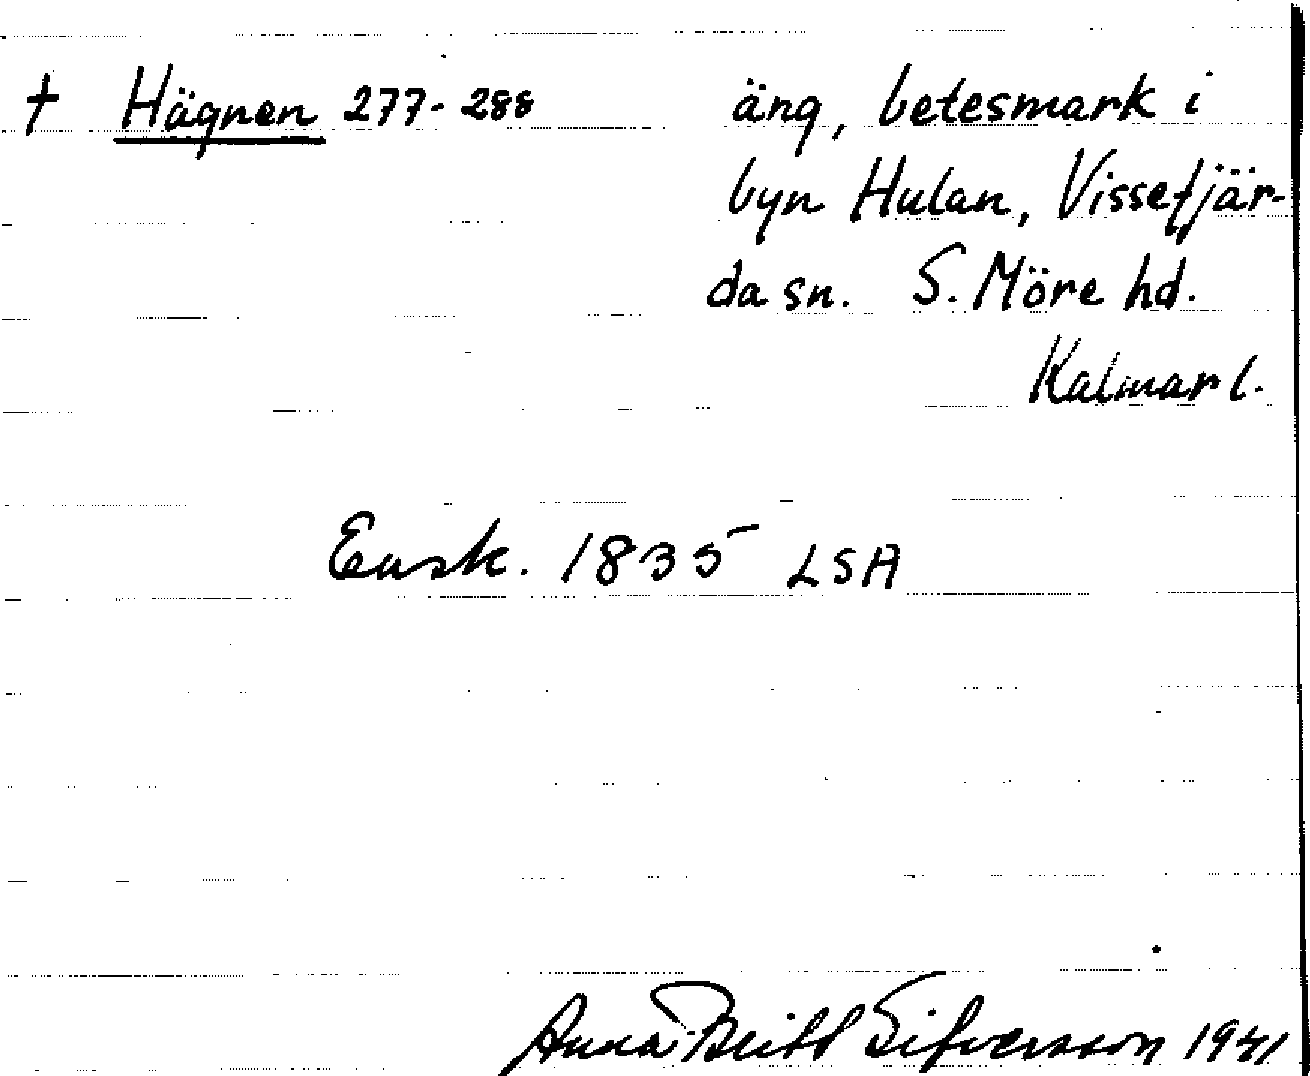 † Hägnen 277-288 äng, betesmark i
byn Hulan, Vissefjär-
da sn. S. Möre hd.
Kalmar l.
Ensk. 1835 LSA
Anna-Britt Sifversson 1941